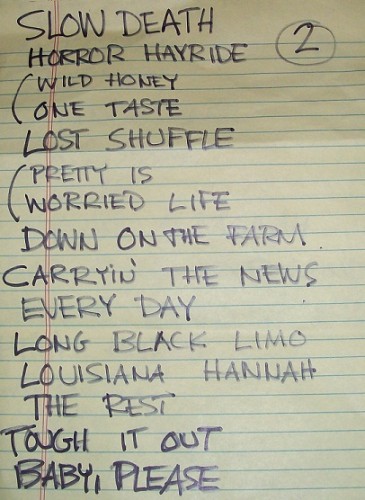 SLOW DEATH
2
HORROR HAYRIDE
WILD HONEY
ONE TASTE
LOST SHUFFLE
PRETTY IS
WORRIED LIFE
DOWN ON THE FARM
CARRYIN' THE NEWS
EVERY DAY
LONG BLACK LIMO
LOUISIANA HANNAH
THE REST
TOUGH IT OUT
BABY, PLEASE